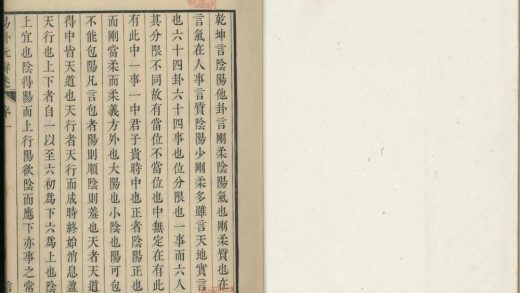 乾坤言陰陽他卦言剛柔陰陽氣也剛柔質也在
言氣在人事言質陰陽少剛柔多雖言天地實言
也六十四卦六十四事也位分限也一事而六人
其分限不同故有當位不當位也中無定在有此
有此中一事一中君子貴時中也正者陰陽正也
而剛當柔而柔義方外也大陽也小陰也陽可包
不能包陽凡言包者陽則順陰則羞也天者天道
得中皆天道也天行者天行而成時終始消息盈
天行也上下者自一以至六初爲下六爲上也陰
上宜也陰得陽而上行陽欲陰而應下亦事之常